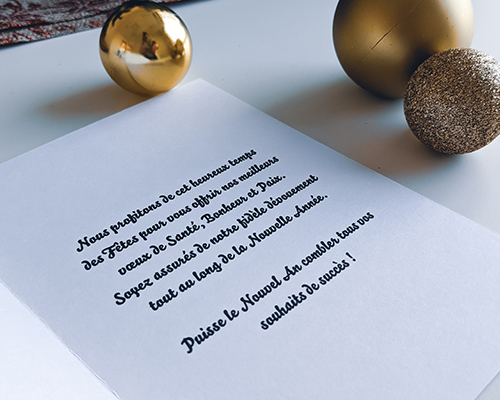 Nous profitons de cet heureux temps
des Fêtes pour vous offrir nos meilleurs
vœux de Santé, Bonheur et Paix.
Soyez assurés de notre fidèle dévouement
tout au long de la Nouvelle Année.
Puisse le Nouvel An combler tous vos
souhaits de succès !